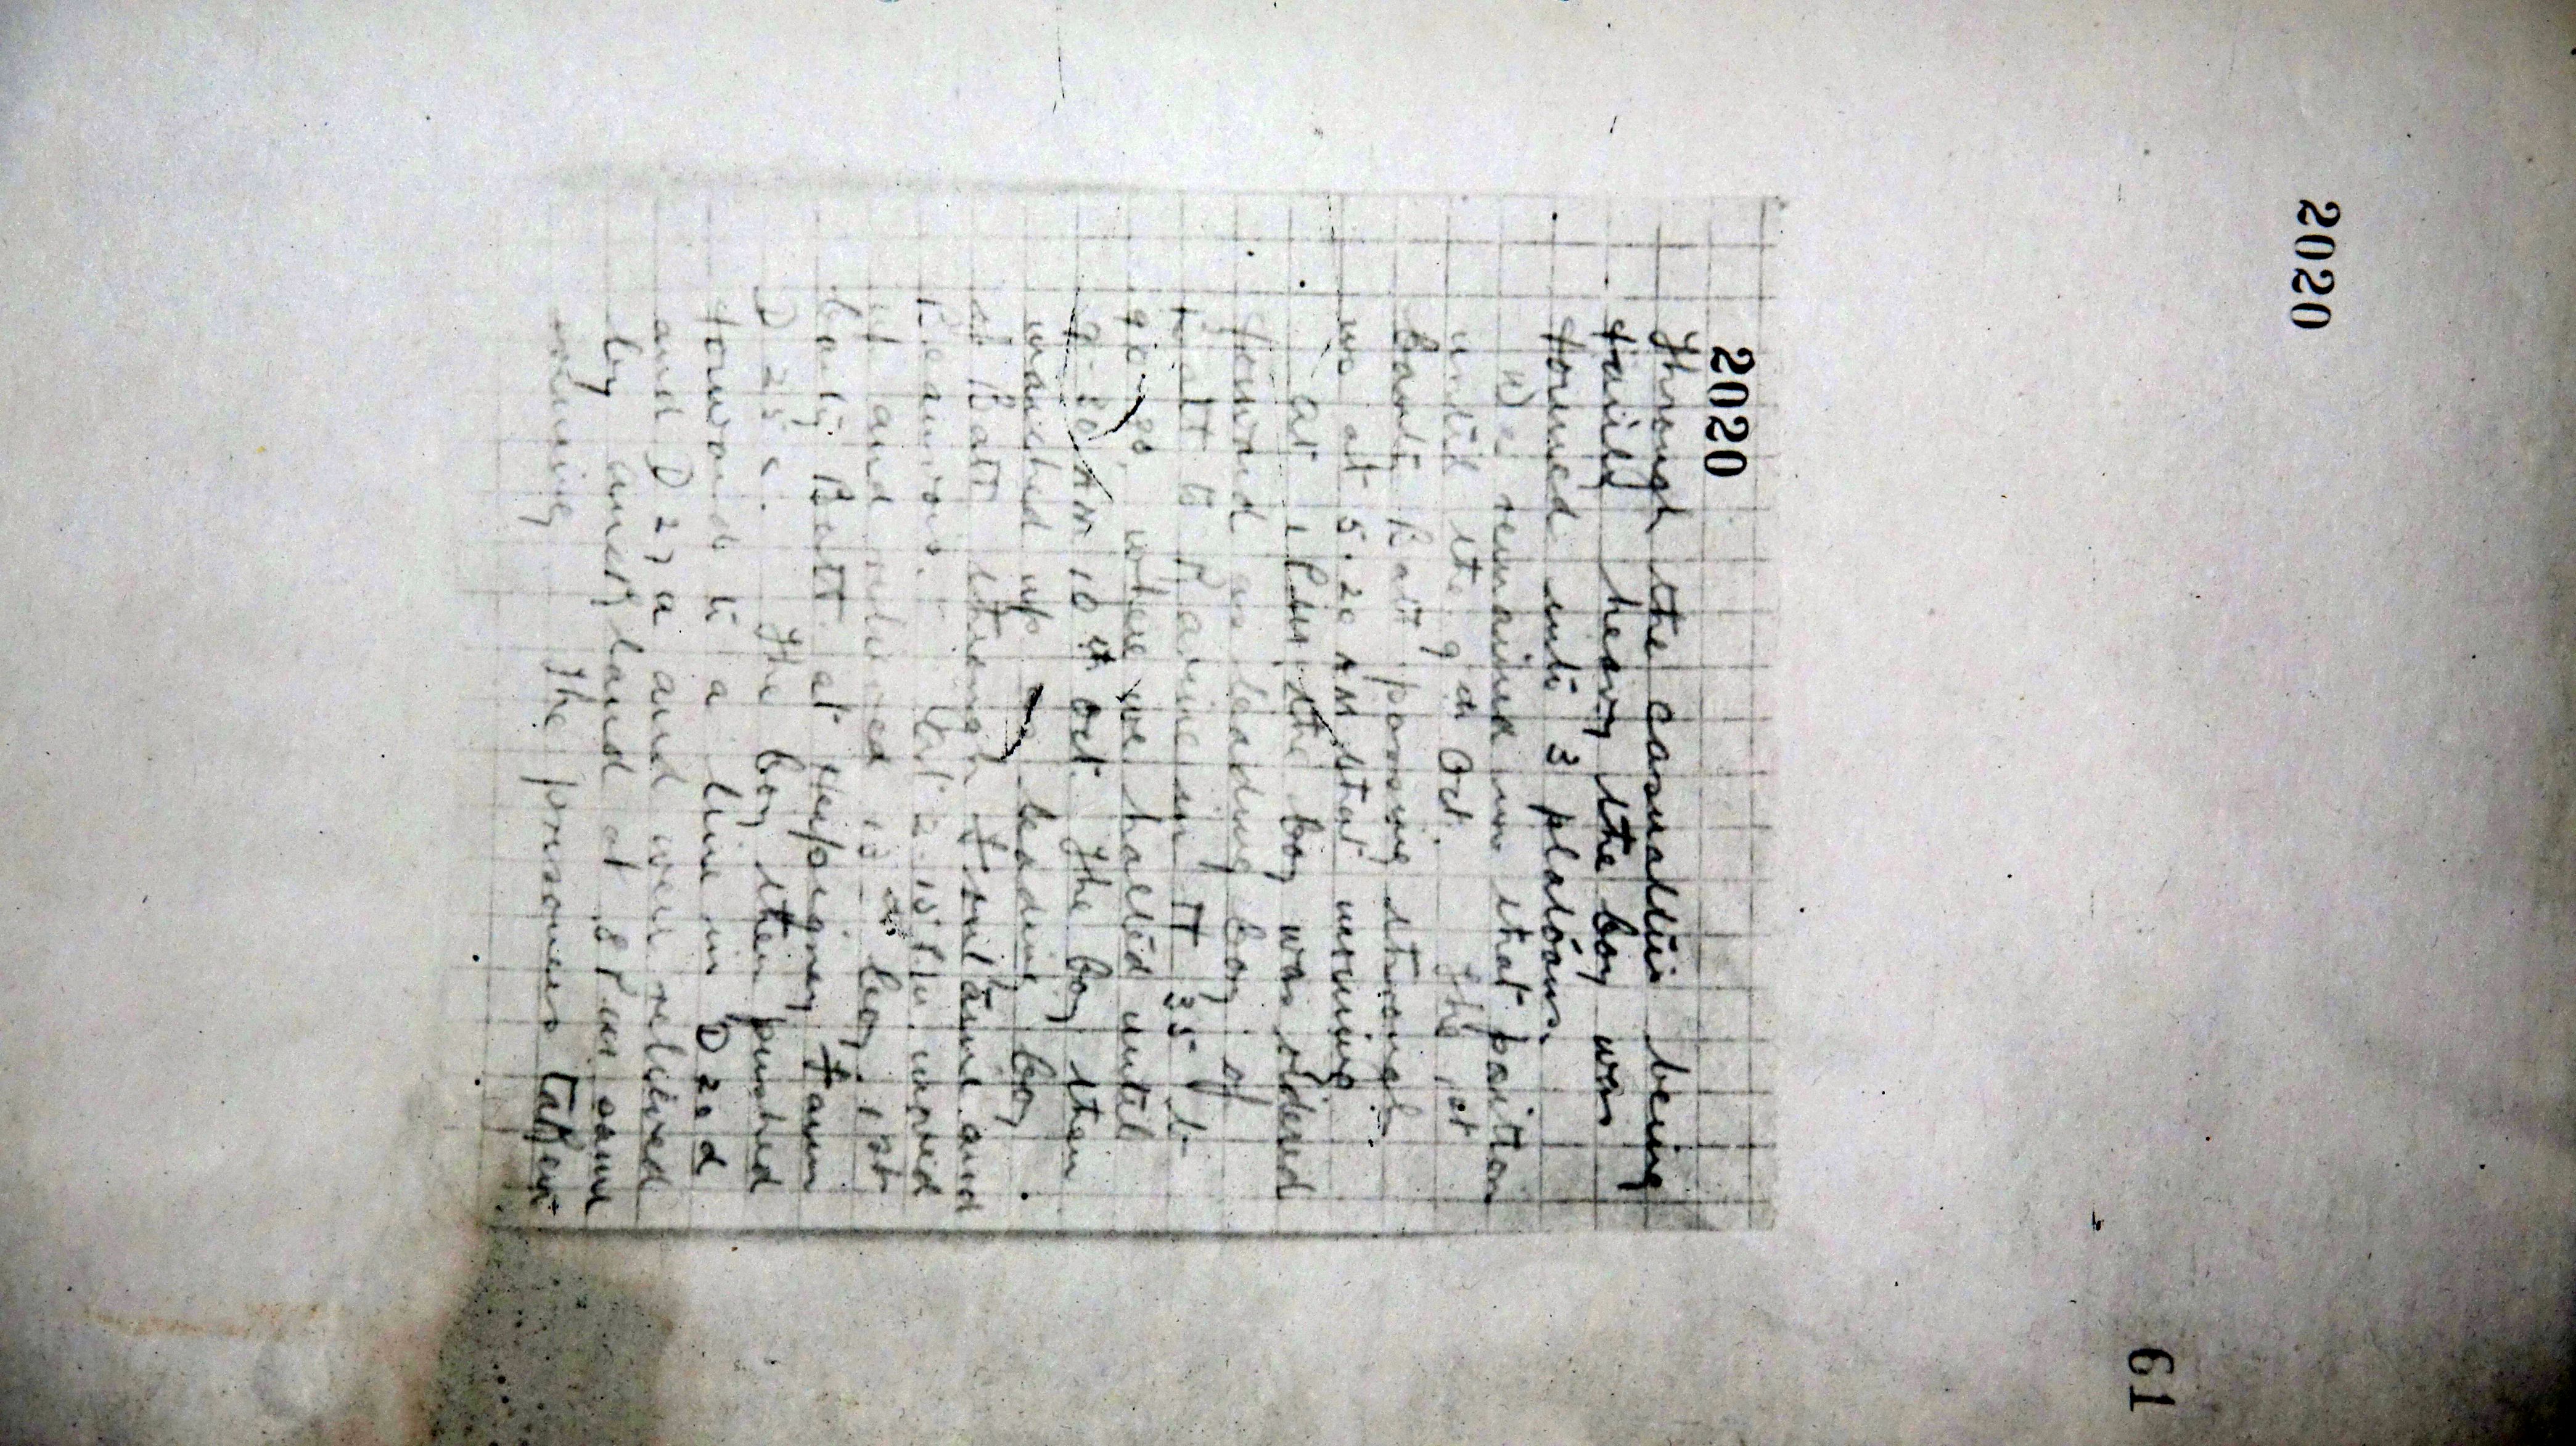 2020
61
2020
Through the casualties being
fairly heavy the coy was
formed into 3 platoons.
We remained in that position
until the 9th Oct. The 1st
Batt passing through
us at 5.20 AM that morning.
At 1 PM the coy was ordered
forward as leading coy of
Batt to Ravine in T 35 b
where we halted until
AM 10th Oct. The coy then
marched up leading coy
of Batt through Fontaine and
At 2.15 PM. moved
and relieved coy 1st
Batt at Herpigney Farm
D 25 c. The coy then pushed
forward to a line in D 20 d
and D 27 a and were relieved
by land at 8 PM same
evening The prisoners taken